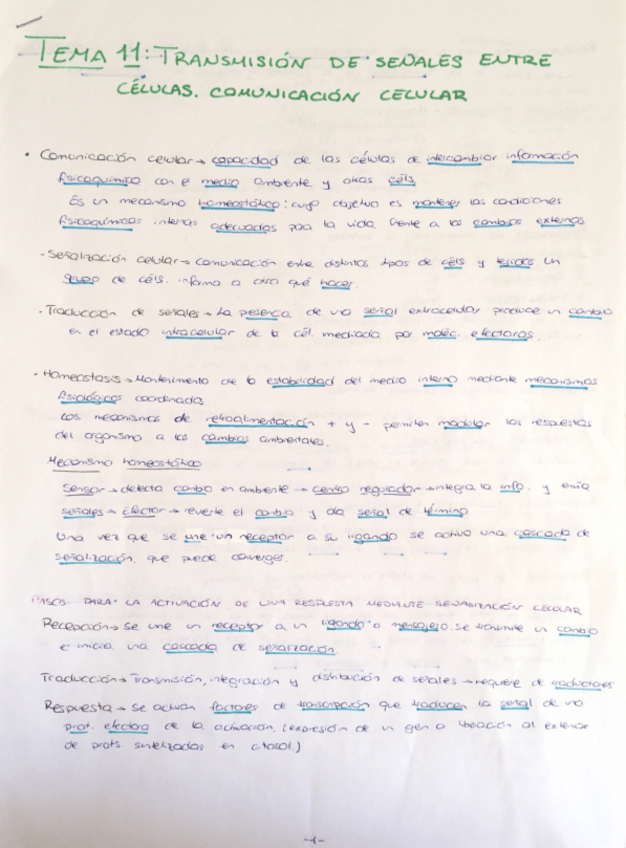 TEMA 11: TRANSMISIÓN DE SEÑALES ENTRE
CÉLULAS. COMUNICACIÓN CELULAR
• Comunicación celular → capacidad de las células de intercambiar información
fisicoquímica con el medio ambiente y otras céls.
Es un mecanismo homeostático: cuyo objetivo es mantener las condiciones
fisicoquímicas internas adecuadas para la vida frente a los cambios externos
· Señalización celular → comunicación entre distintos tipos de céls y tejidos. Un
grupo de céls. informa a otro qué hacer.
· Traducción de señales → La presencia de una señal extracelular produce un cambio
en el estado intracelular de la cél. mediada por moléc. efectoras.
• Homeostasis → Mantenimiento de la estabilidad del medio interno mediante mecanismos
fisiológicos coordinados
Los mecanismos de retroalimentación + y - permiten modular las respuestas
del organismo a los cambios ambientales.
Mecanismo homeostático
Sensor → detecta cambio en ambiente → centro regulador → integra la info. y envía
señales → Efector → revierte el cambio y da señal de término
Una vez que se une un receptor a su ligando se activa una cascada de
señalización, que puede converger.
PASOS PARA LA ACTIVACIÓN DE UNA RESPUESTA MEDIANTE SEÑALIZACIÓN CELULAR
Recepción → Se une un receptor a un ligando o mensajero. se transmite un cambio
e inicia una cascada de señalización.
Traducción → Transmisión, integración y distribución de señales → requiere de traductores
Respuesta → Se activan factores de transcripción que traducen la señal de una
prot. efectora de la activación. (expresión de un gen o liberación al exterior
de prots sintetizadas en citosol)
-1-